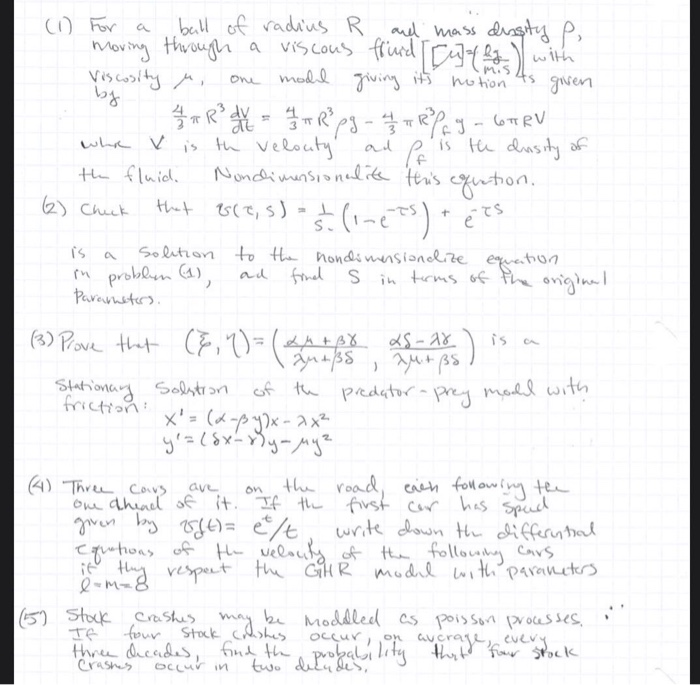 (1) For a ball of radius R and mass density ρ,
moving through a viscous fluid [[μ]=(kg/m·s)] with
viscosity μ, one model giving its motion is given
by
4/3 π R³ dV/dt = 4/3 π R³ ρg - 4/3 π R³ ρ_f g - 6πRV
where V is the velocity and ρ_f is the density of
the fluid. Nondimensionalize this equation.
(2) Check that v(τ, s) = 1/s (1 - e^-τs) + e^-τs
is a solution to the nondimensionalize equation
in problem (1), and find S in terms of the original
Parameters.
(3) Prove that (ξ, η) = ((αμ + βγ)/(λμ + βδ), (αδ - λγ)/(λμ + βδ)) is a
Stationary Solution of the predator-prey model with
friction:
x' = (α - βy)x - λx²
y' = (δx - γ)y - μy²
(4) Three cars are on the road, each following the
one ahead of it. If the first car has speed
given by v_f(t) = e^t/t, write down the differential
equations of the velocity of the following cars
if they respect the GHR model with parameters
l=m=8
(5) Stock crashes may be modelled as poisson processes.
If four stock crashes occur, on average, every
three decades, find the probability that four stock
crashes occur in two decades.